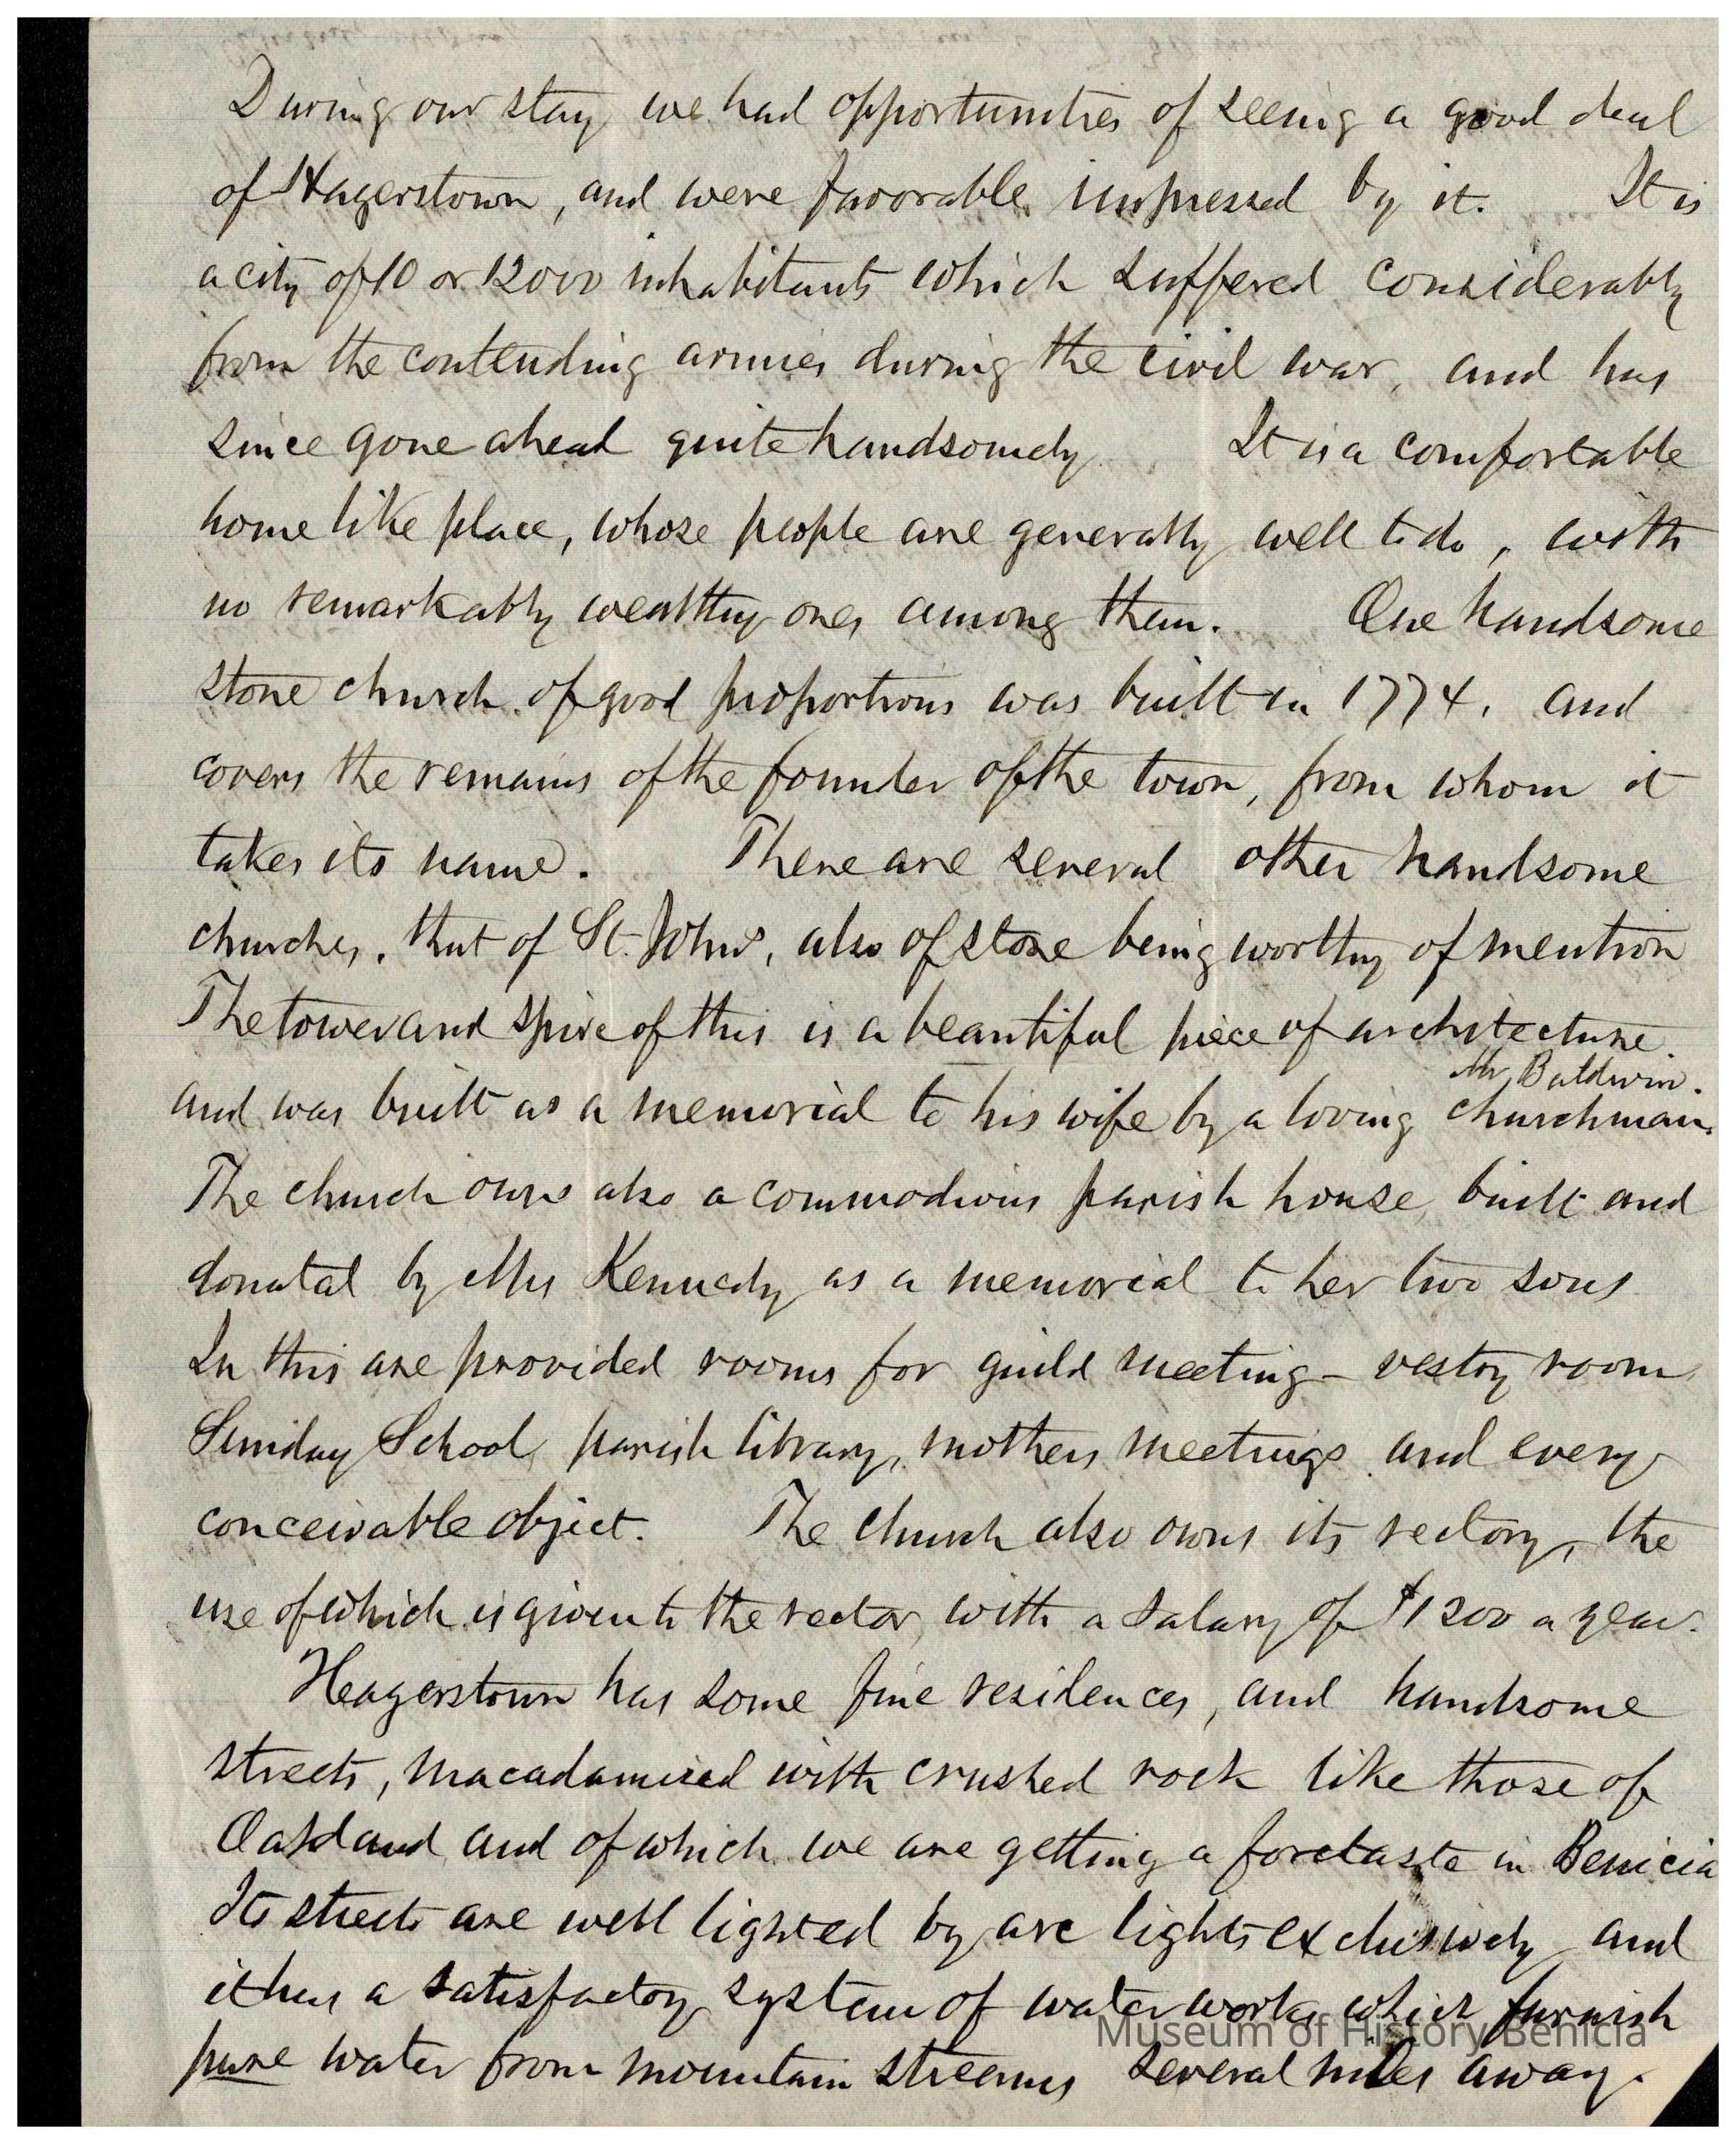 During our stay we had opportunities of seeing a good deal
of Hagerstown, and were favorable impressed by it. It is
a city of 10 or 12000 inhabitants which suffered considerably
from the contending armies during the civil war, and has
since gone ahead quite handsomely It is a comfortable
home like place, whose people are generally well to do, with
no remarkably wealthy ones among them. One handsome
stone church of good proportions was built in 1774, and
covers the remains of the founder of the town, from whom it
takes its name. There are several other handsome
churches, that of St. Johns, also of stone being worthy of mention
The tower and spire of this is a beautiful piece of architecture.
Mr. Baldwin.
and was built as a memorial to his wife by a loving churchman.
The church owns also a commodious parish house, built and
donated by Mrs Kennedy as a memorial to her two sons
In this are provided rooms for guild meeting - vestry room
Sunday School, parish library, mothers meetings and every
conceivable object. The church also owns its rectory, the
use of which is given to the rector, with a salary of $1200 a year.
Heagerstown has some fine residences, and handsome
streets, macadamized with crushed rock like those of
Oakland and of which we are getting a foretaste in Benicia
Its streets are well lighted by arc lights exclusively and
it has a satisfactory system of water works which furnish
pure water from mountain streams several miles away.
Museum of History Benicia